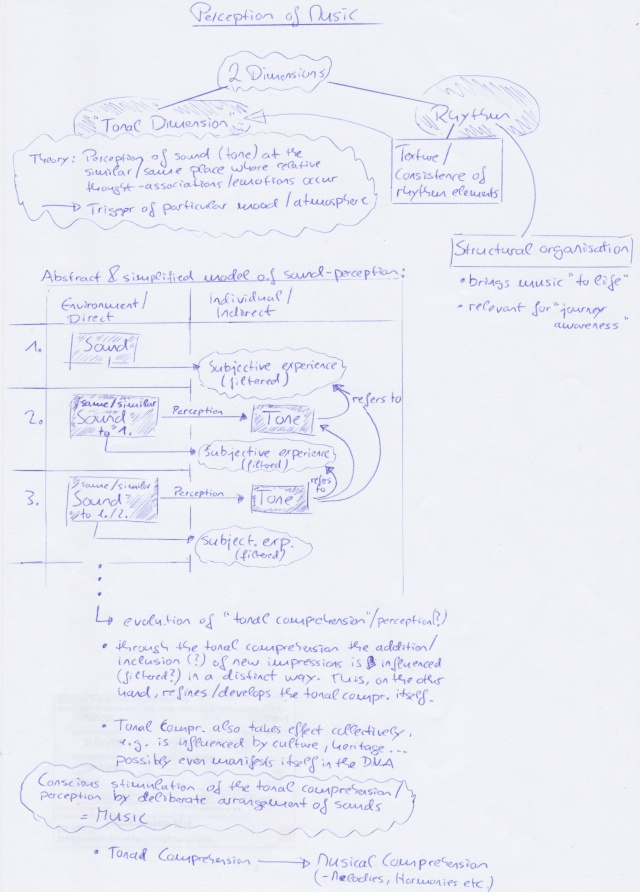 Perception of Music
2 Dimensions
"Tonal Dimension"
Rhythm
Theory: Perception of sound (tone) at the
similar/same place where relative
thought-associations/emotions occur
→ Trigger of particular mood/atmosphere
Texture/
Consistence of
rhythm elements
Structural organisation
• brings music "to life"
• relevant for "journey
awareness"
Abstract & simplified model of sound-perception:
Environment/
Direct
Individual/
Indirect
1.
Sound
Subjective experience
(filtered)
refers to
2.
same/similar
Sound
to 1.
Perception
Tone
Subjective experience
(filtered)
3.
same/similar
Sound
to 1./2.
Perception
Tone
refers
to
Subject. exp.
(filtered)
↳ evolution of "tonal comprehension"/perception(?)
• through the tonal comprehension the addition/
inclusion (?) of new impressions is influenced
(filtered?) in a distinct way. This, on the other
hand, refines/develops the tonal compr. itself.
• Tonal Compr. also takes effect collectively,
e.g. is influenced by culture, heritage...
possibly even manifests itself in the DNA
Conscious stimulation of the tonal comprehension/
perception by deliberate arrangement of sounds
= Music
• Tonal Comprehension → Musical Comprehension
(-Melodies, Harmonies etc.)